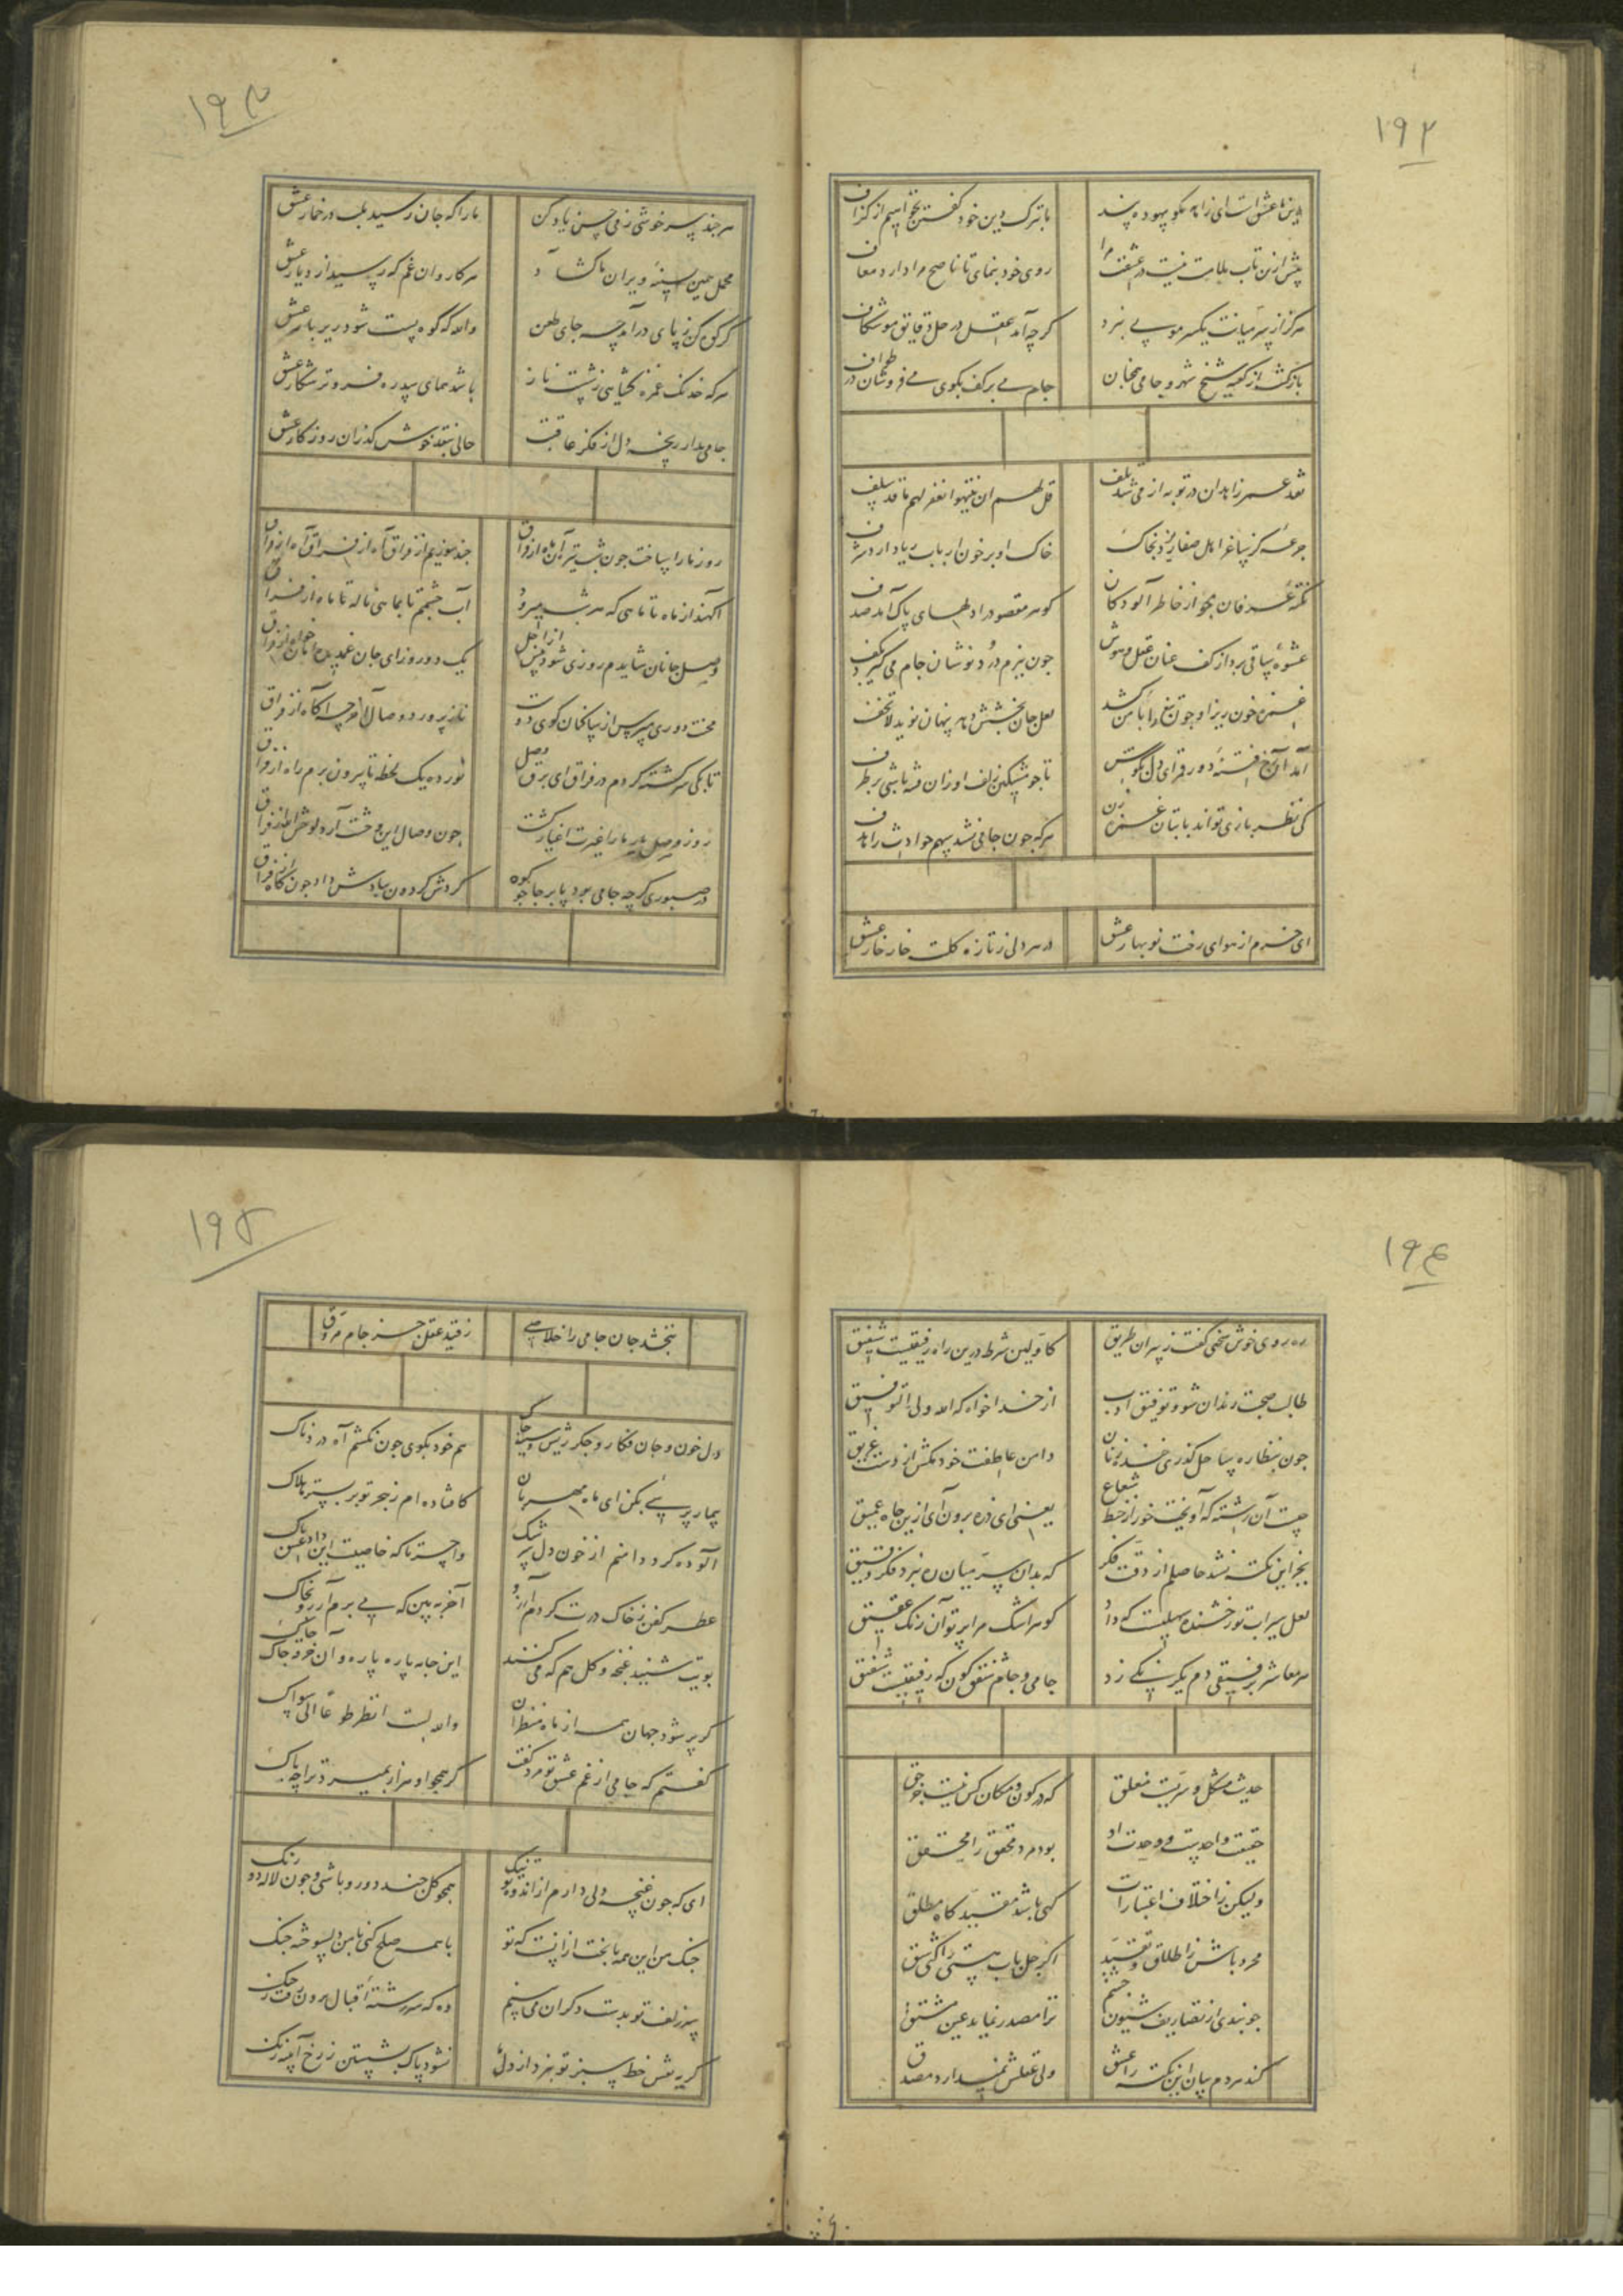 ۱۹۲
دین ما عشق است ای زاهد مگو بیهوده پند
ما بترک دین خود گفتن نخواهیم از گزاف
بیش ازین تاب ملامت نیست در عشقت مرا
روی خود بنمای تا ناصح مرا دارد معاف
هرگز از سر میانت یکسر مویی نبرد
گرچه آمد عقل در حل دقایق موشکاف
بازگشت از کعبه شیخ شهر و جامی همچنان
جام می بر کف بکوی می فروشان در طواف
نقد عمر زاهدان در توبه از می شد تلف
قل لهم ان ینتهوا یغفر لهم ما قد سلف
جرعه کز ساغر اهل صفا ریزد بخاک
خاک او بر خون ارباب ریا دارد شرف
نکته عرفان مجو از خاطر آلودگان
گوهر مقصود را دلهای پاک آمد صدف
عشوه ساقی برد از کف عنان عقل و هوش
چون ببزم درد نوشان جام می گیرد بکف
غمزه خون ریز او چون تیغ راند بر من کشد
لعل جان بخشش دهد پنهان نوید لاتخف
کی نظر بازی تواند با بتان غمزه زن
هرکه چون جامی نشد سهم حوادث را هدف
ای خرم از هوای رخت نوبهار عشق
در هر دلی ز تازه گلت خار خار عشق
۱۹۳
هر چند سرخوشی ز می حسن یاد کن
ما را که جان رسید بلب در خمار عشق
محمل همین بسینه ویران ما گشاد
هر کاروان غم که رسید از دیار عشق
گر کوه کن ز پای درآمد چه جای طعن
والله که کوه پست شود زیر بار عشق
هرکه خدنگ غمزه گشایی ز شست ناز
باشد همای سدره فروتر شکار عشق
جامی مدار رنجه دل از فکر عاقبت
حالی بنقد خوش گذران روزگار عشق
روز ما را ساخت چون شب تیره آن ماه از فراق
چند سوزیم از فراق آه از فراق آه از فراق
آگهند از ماه تا ماهی که هر شب میرود
آب چشمم تا بماهی ناله تا ماه از فراق
وصل جانان شایدم روزی شود پیش از اجل
یک دو روز ای جان غمدیده امان خواه از فراق
محنت دوری مپرس از ساکنان کوی دوست
ناز پرورد وصال آخر چه آگاه از فراق
تا بکی سرگشته گردم در فراق ای برق وصل
نور ده یک لحظه تا بیرون برم راه از فراق
روز وصل یار ما را غیرت اغیار کشت
در صبوری گرچه جامی بود پابرجا چو کوه
گردش گردون ببادش داد چون کاه از فراق
۱۹۴
ره روی خوش سخنی گفت ز پیران طریق
کاولین شرط درین راه رفیقیست شفیق
طالب صحبت رندان شو و توفیق ادب
از خدا خواه که الله ولی التوفیق
چون بنظاره بساحل گذری خنده زنان
دامن عاطفت خود مکش از دست غریق
چیست آن رشته که آویخت خور از خط شعاع
یعنی ای ذره برون آی ازین چاه عمیق
بجز این نکته نشد حاصلم از دقت فکر
که بدان سر میان ره نبرد فکر دقیق
لعل سیراب تو رخشنده سهیلیست که داد
گوهر اشک مرا پرتو آن رنگ عقیق
هر معاشر برفیقی دم یکرنگی زد
جامی و جام شفق گون که رفیقیست شفیق
حدیث مشکل و سریست مغلق
که در کون و مکان کس نیست جز حق
حقیقت واحدیست و وحدت او
بود مرد محقق را محقق
ولیکن ز اختلاف اعتبارات
گهی باشد مقید گاه مطلق
مجرد باش ز اطلاق و تقیید
اگر جلباب هستی را کنی شق
چو بندی از تصاریف شیون چشم
ترا مصدر نماید عین مشتق
کند هر دم بیان این نکته را عشق
ولی عقلش نمیدارد مصدق
۱۹۵
نبخشد جان جامی را خلاصی
ز قید عقل جز جام مروق
دل خون و جان فکار و جگر ریش و سینه چاک
هم خود بگوی چون نکشم آه دردناک
بیمار پرسیی بکن ای ماه مهربان
کافتاده ام ز هجر تو بر بستر هلاک
آلوده کرد دامنم از خون دل سرشک
واحسرتا که خاصیت این داد عشق پاک
عطر کفن ز خاک درت کردم آرزو
آخر ببین که می برم آن آرزو بخاک
بویت شنید غنچه و گل هم که می کنند
این جامه پاره پاره و آن خرقه چاک چاک
گر پر شود جهان همه از ماه منظران
والله لست انظر طوعا الی سواک
گفتم که جامی از غم عشق تو مرد گفت
گر همچو او هزار بمیرد ترا چه باک
ای که چون غنچه دلی دارم از اندوه تو تنگ
همچو گل چند دو رو باشی و چون لاله دو رنگ
جنگ من این همه با بخت ازانست که تو
با همه صلح کنی با من دلسوخته جنگ
سر زلف تو بدست دگران می بینم
وه که سررشته اقبال برون رفت ز چنگ
گریه نقش خط سبز تو نبرد از دل ما
نشود پاک بشستن ز رخ آینه زنگ